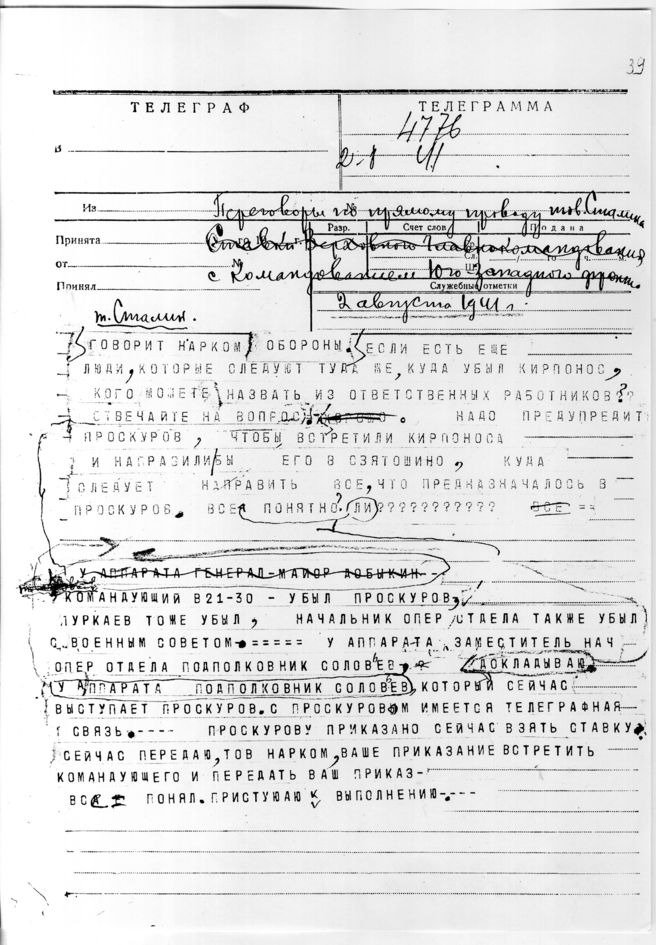 39
ТЕЛЕГРАФ
ТЕЛЕГРАММА
4776
В
2-1 ЧI
Из
Переговоры по прямому проводу тов. Сталина
№
Разр.
Счет слов
Подана
Принята
Ставки Верховного Главнокомандования
Сл.
го ч. м.
от
№
с Командованием Юго Западного фронта.
Принял
Служебные отметки
2 августа 1941 г.
т. Сталин.
ГОВОРИТ НАРКОМ ОБОРОНЫ. ЕСЛИ ЕСТЬ ЕЩЕ
ЛЮДИ, КОТОРЫЕ СЛЕДУЮТ ТУДА ЖЕ, КУДА УБЫЛ КИРПОНОС,
КОГО МОЖЕТЕ НАЗВАТЬ ИЗ ОТВЕТСТВЕННЫХ РАБОТНИКОВ??
ОТВЕЧАЙТЕ НА ВОПРОС. НАДО ПРЕДУПРЕДИТ
ПРОСКУРОВ, ЧТОБЫ ВСТРЕТИЛИ КИРПОНОСА
И НАПРАЗИЛИ БЫ ЕГО В СЗЯТОШИНО, КУДА
СЛЕДУЕТ НАПРАВИТЬ ВСЕ, ЧТО ПРЕДНАЗНАЧАЛОСЬ В
ПРОСКУРОВ. ВСЕ ПОНЯТНО? ЛИ ??????????? ВСЕ ==
У АППАРАТА ГЕНЕРАЛ-МАЙОР ДОБЫКИН--
КОМАНДУЮЩИЙ В21-30 - УБЫЛ ПРОСКУРОВ,
ПУРКАЕВ ТОЖЕ УБЫЛ, НАЧАЛЬНИК ОПЕР ОТДЕЛА ТАКЖЕ УБЫЛ
С ВОЕННЫМ СОВЕТОМ ===== У АППАРАТА ЗАМЕСТИТЕЛЬ НАЧ
ОПЕР ОТДЕЛА ПОДПОЛКОВНИК СОЛОВЬЕВ, ДОКЛАДЫВАЮ
У АППАРАТА ПОДПОЛКОВНИК СОЛОВЬЕВ, КОТОРЫЙ СЕЙЧАС
ВЫСТУПАЕТ ПРОСКУРОВ. С ПРОСКУРОВОМ ИМЕЕТСЯ ТЕЛЕГРАФНАЯ
СВЯЗЬ.---- ПРОСКУРОВУ ПРИКАЗАНО СЕЙЧАС ВЗЯТЬ СТАВКУ.
СЕЙЧАС ПЕРЕДАЮ, ТОВ НАРКОМ, ВАШЕ ПРИКАЗАНИЕ ВСТРЕТИТЬ
КОМАНДУЮЩЕГО И ПЕРЕДАТЬ ВАШ ПРИКАЗ-
ВСЕ ПОНЯЛ. ПРИСТУЮАЮ К ВЫПОЛНЕНИЮ-.---